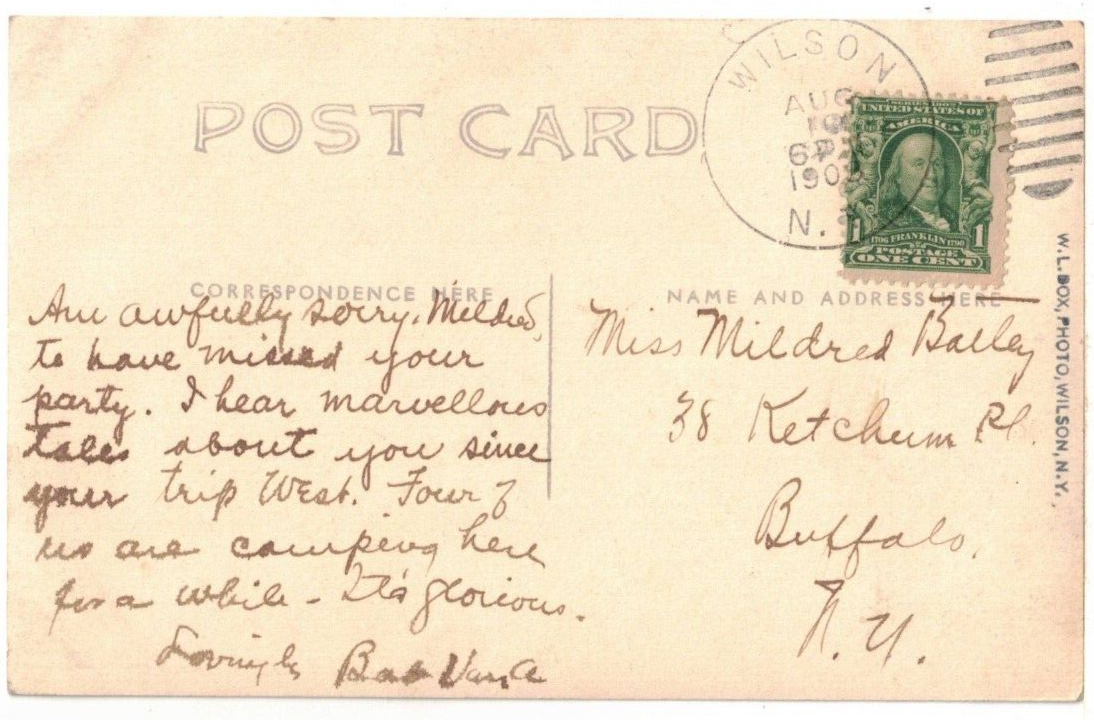 POST CARD
WILSON
AUG
6 P
190
N.
SERIES 1902
UNITED STATES OF
AMERICA
1 1706 FRANKLIN 1790 1
POSTAGE
ONE CENT
CORRESPONDENCE HERE
Am awfully sorry, Mildred,
to have missed your
party. I hear marvellous
tales about you since
your trip West. Four of
us are camping here
for a while - It's glorious.
Lovingly
NAME AND ADDRESS HERE
Miss Mildred Bailey
38 Ketchum Pl.
Buffalo,
N.Y.
W.L.BOX, PHOTO, WILSON, N.Y.